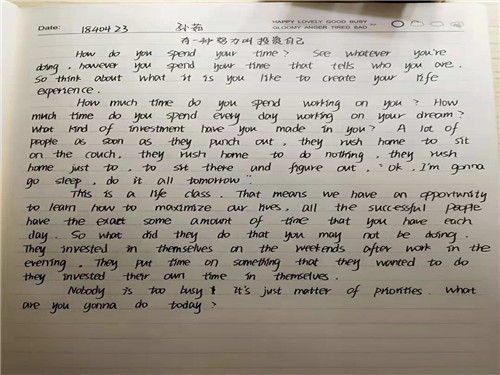 Date: 1840423 孙茹 HAPPY LOVELY GOOD BUSY
GLOOMY ANGER TIRED SAD
有一种努力叫投资自己
How do you spend your time? See whatever you're
doing, however you spend your time that tells who you are.
So think about what it is you like to create your life
experience.
How much time do you spend working on you? How
much time do you spend every day working on your dream?
What kind of investment have you made in you? A lot of
people as soon as they punch out, they rush home to sit
on the couch, they rush home to do nothing, they rush
home just to, to sit there and figure out, "Ok, I'm gonna
go sleep, do it all tomorrow".
This is a life class. That means we have an opportunity
to learn how to maximize our lives, all the successful people
have the exact some amount of time that you have each
day. So what did they do that you may not be doing.
They invested in themselves on the weekends after work in the
evening. They put time on something that they wanted to do
they invested their own time in themselves.
Nobody is too busy, it's just matter of priorities. What
are you gonna do today?